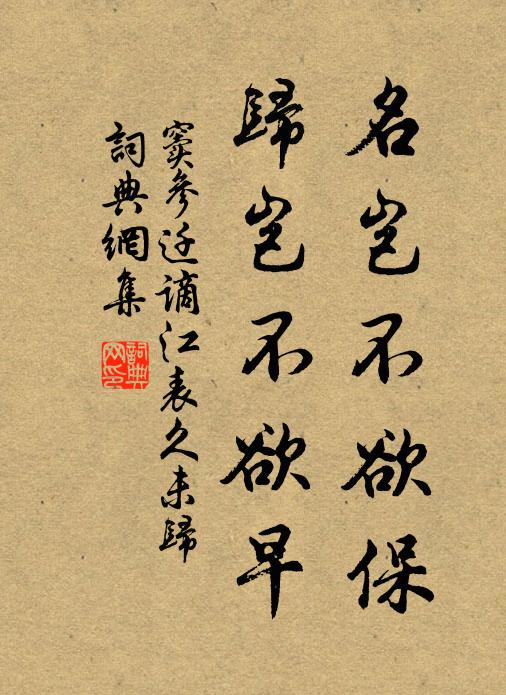 名豈不欲保
歸豈不欲早
竇參迁謫江表久未歸
詞典網集
詞典
网印